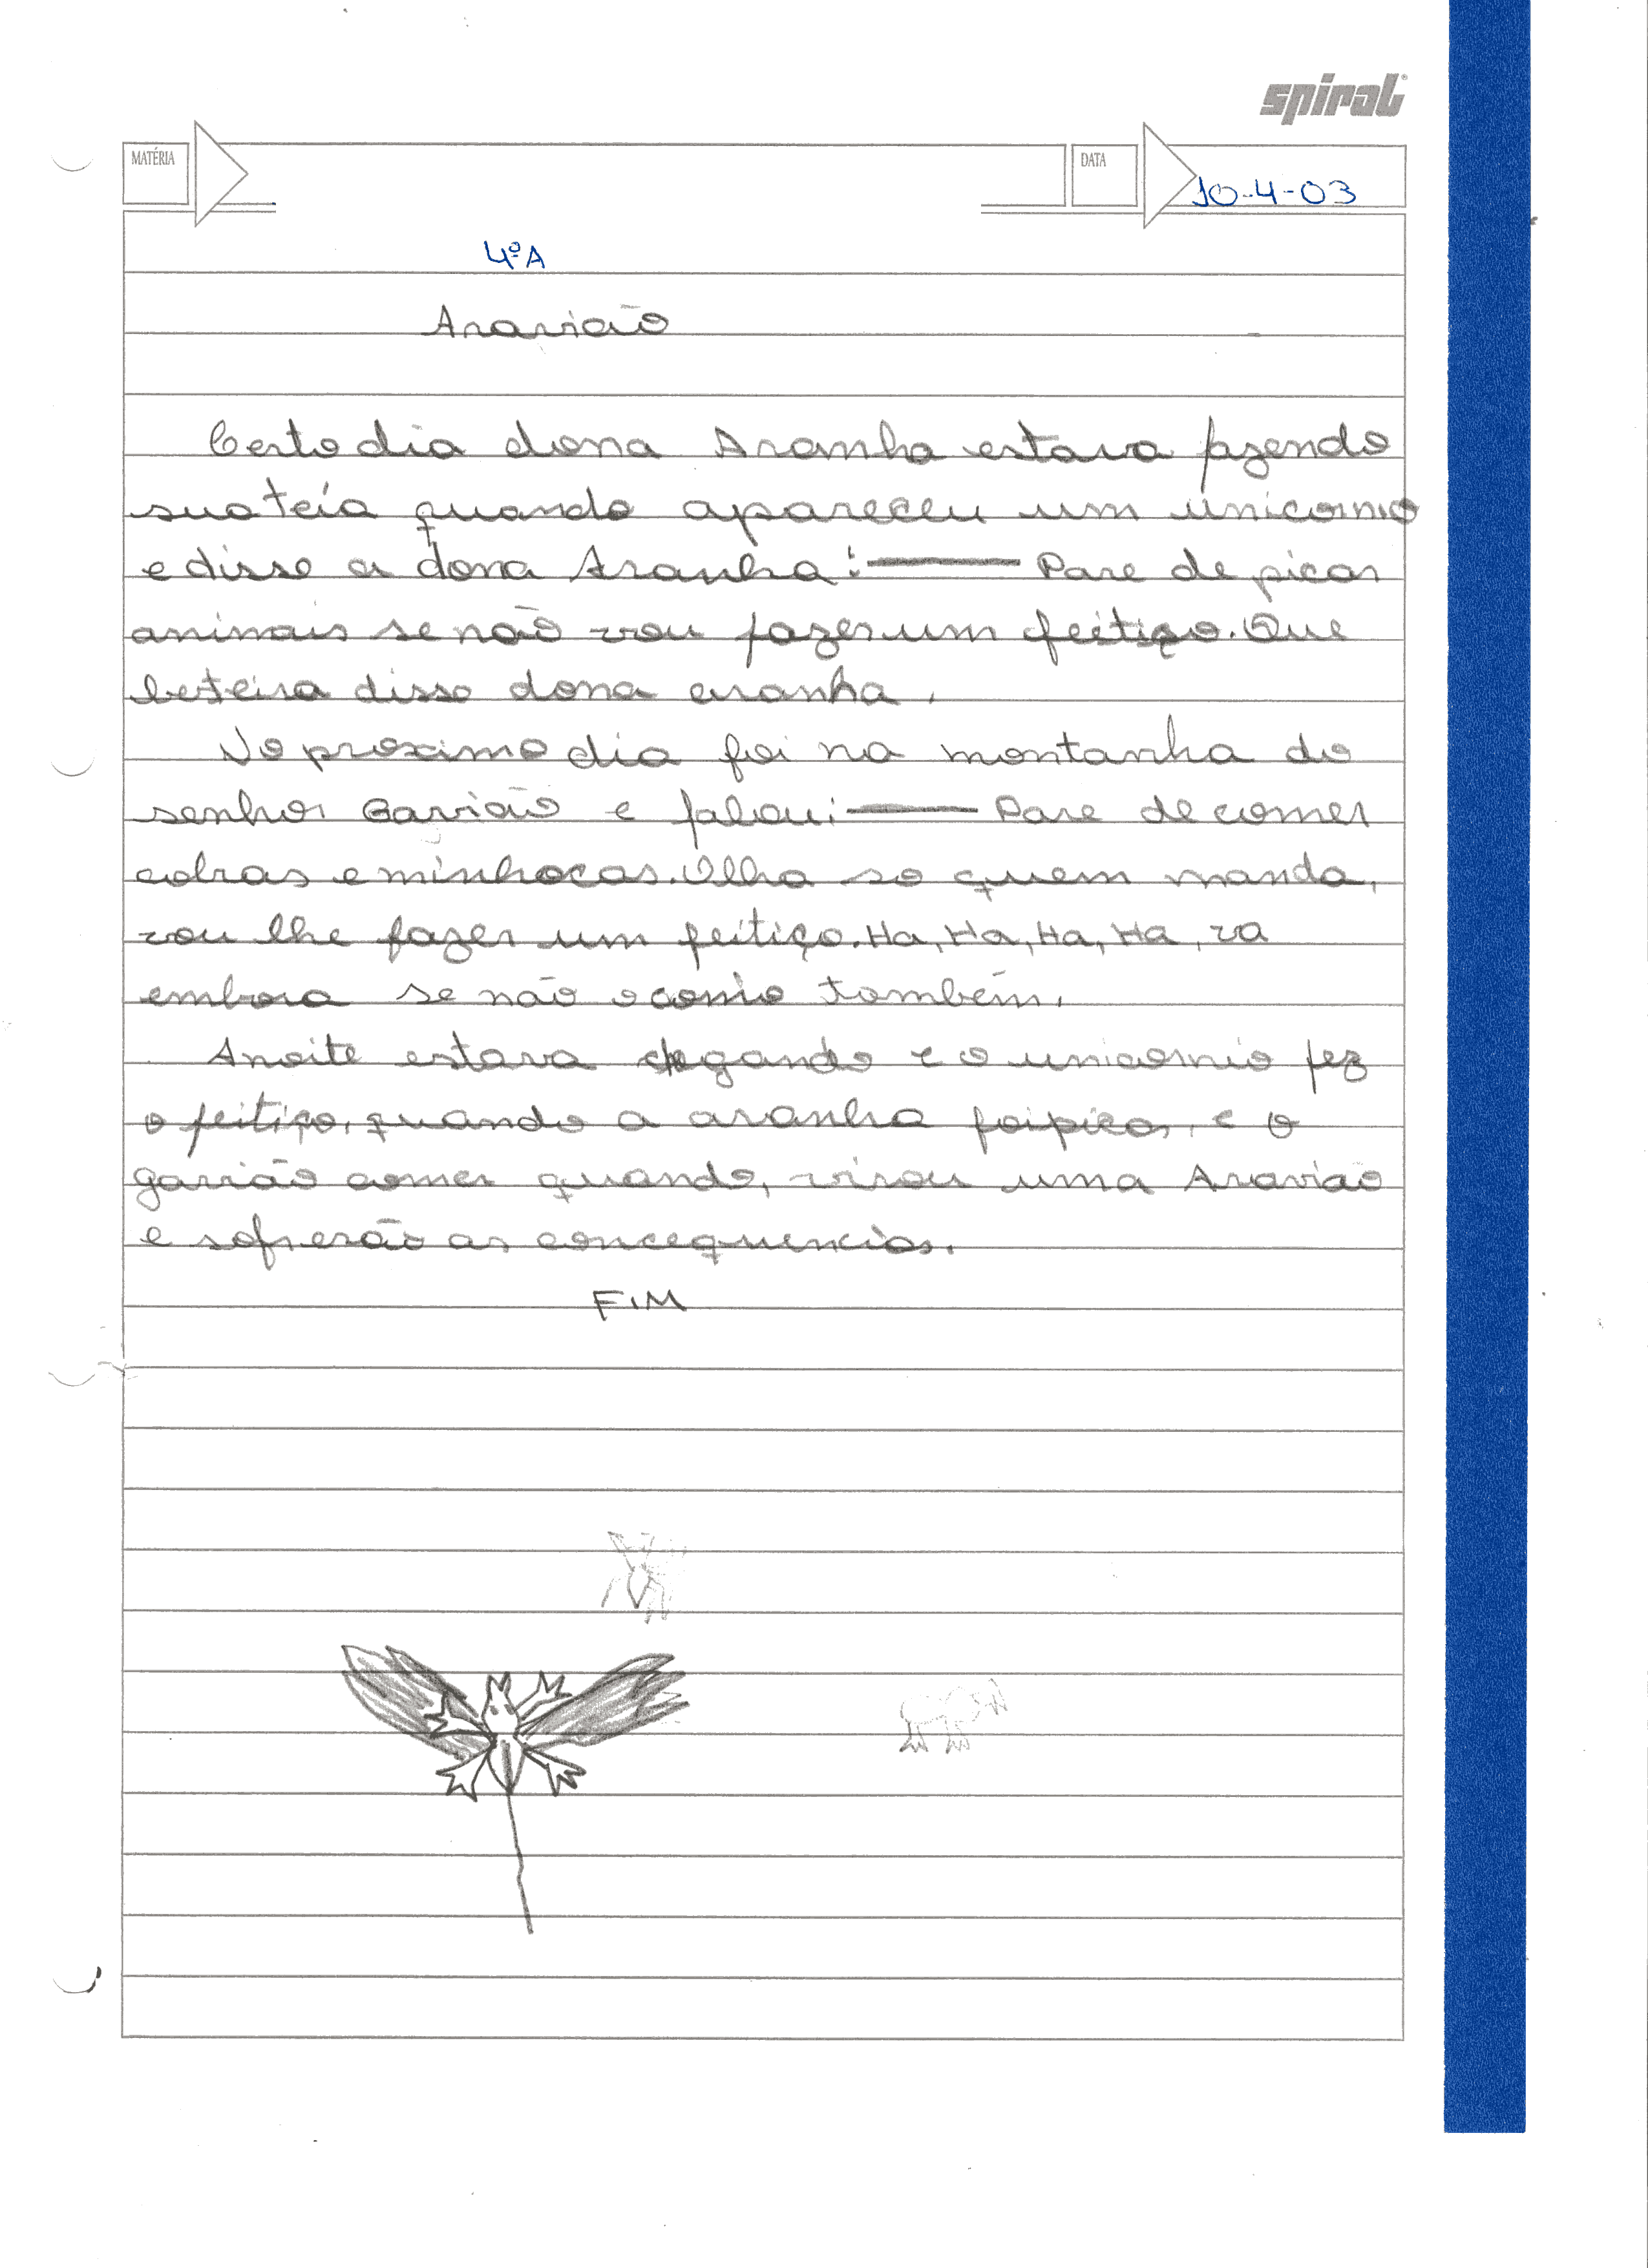 spiral®
MATÉRIA
DATA
10-4-03
4ºA
Aravião
Certo dia dona Aranha estava fazendo
sua teia quando apareceu um unicornio
e disse a dona Aranha: — Pare de picar
animais se não vou fazer um feitiço. Que
besteira disse dona aranha.
No proximo dia foi na montanha do
senhor Gavião e falou: — Pare de comer
cobras e minhocas. Olha so quem manda,
vou lhe fazer um feitiço. Ha, Ha, Ha, Ha, va
embora se não o como também.
A noite estava chegando e o unicornio fez
o feitiço, quando a aranha foi picar, e o
gavião comer quando, virou uma Aravião
e sofrerão as concequencias.
FIM